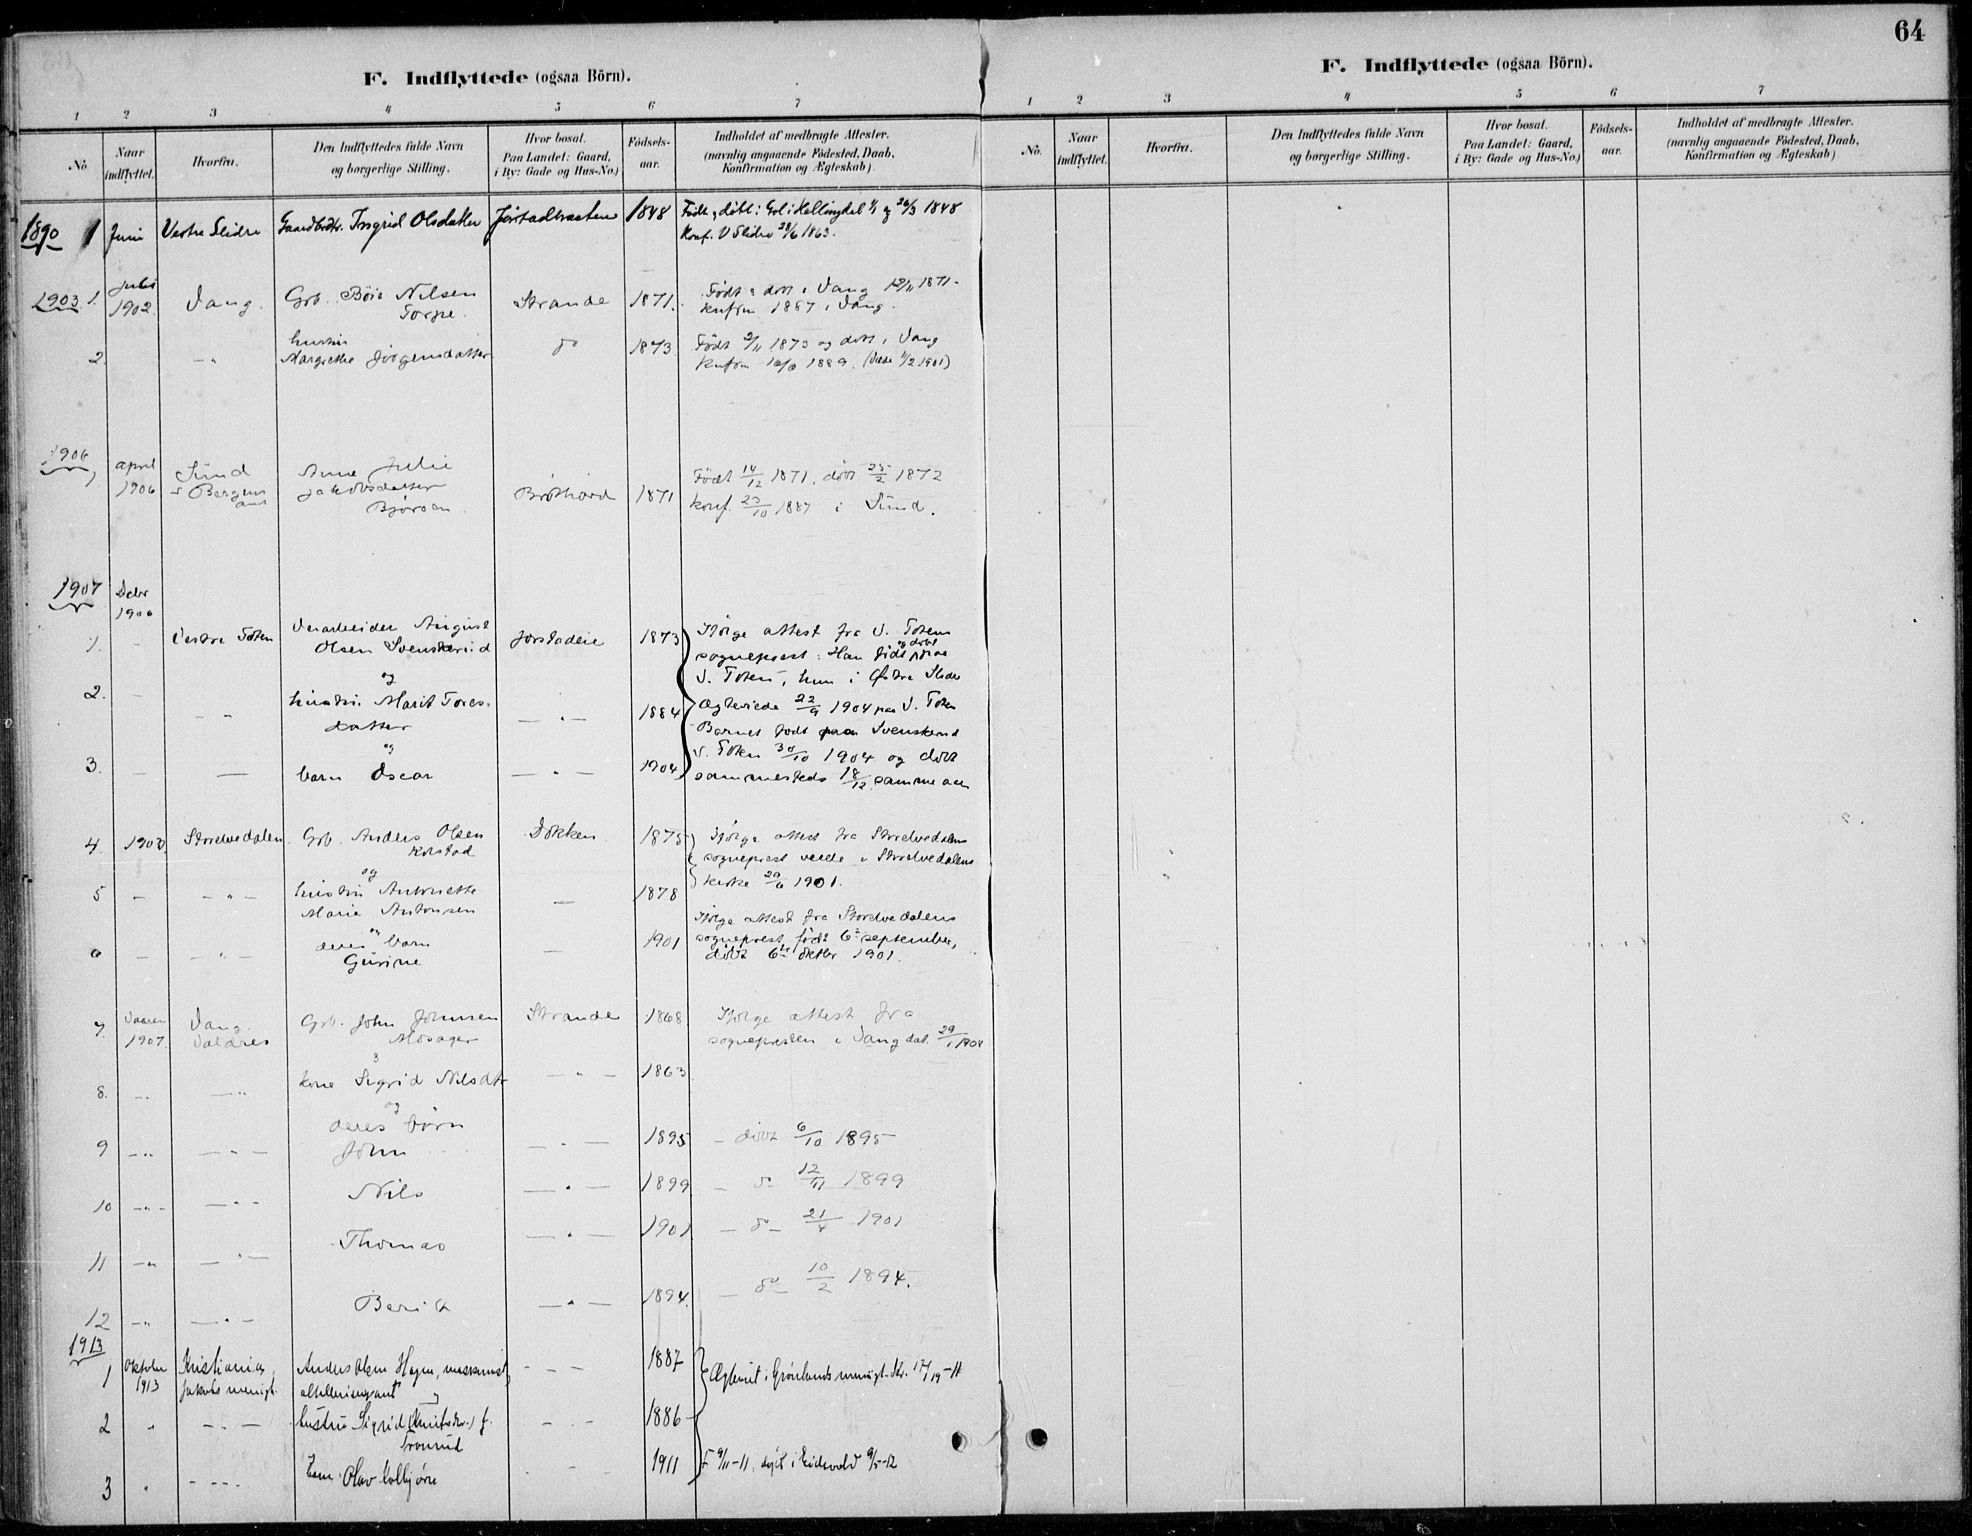 64
F. Indflyttede (ogsaa Börn).
F. Indflyttede (ogsaa Börn).
1 2 3 4 5 6 7
1 2 3 4 5 6 7
No. Naar indflyttet. Hvorfra. Den Indflyttedes fulde Navn og borgerlige Stilling. Hvor bosat. Paa Landet: Gaard, i By: Gade og Hus-No.) Födsels-aar. Indholdet af medbragte Attester. (navnlig angaaende Födested, Daab, Konfirmation og Ægteskab)
No. Naar indflyttet. Hvorfra. Den Indflyttedes fulde Navn og borgerlige Stilling. Hvor bosat. Paa Landet: Gaard, i By: Gade og Hus-No.) Födsels-aar. Indholdet af medbragte Attester. (navnlig angaaende Födested, Daab, Konfirmation og Ægteskab)
1890 1 Juni Vestre Slidre Ingrid Olsdatter 1848 Født, døbt i Gol i Hallingdal 1/1 og 26/3 1848
Konf. V Slidre 1863.
1903 1. Juli 1902 Vang. Grb. Böie Nilsen Strande 1871. Födt & döbt i Vang 12/11 1871.
Torpe. Knfrm 1887 i Vang.
2. - " hustru do 1873 Födt 2/11 1873 og döbt i Vang
Margrethe Jörgensdatter Knfrm 1889. (Viede 1/2 1901)
1906
1 april 1906 Sund Anne Julie 1871 Födt 14/12 1871, döbt 25/2 1872
i Bergens amt Jakobsdatter konf. 23/10 1887 i Sund.
1907 Debr 1906
1. - Vestre Toten August 1873 Ifölge attest fra V. Totens
Olsen Svenskerud sogneprest: Han födt og döbt paa
og V. Toten, hun i Østre Slidre
2. - - " hustru Marit Tores- - " - 1884 Ægteviede 22/9 1904 paa V. Toten
datter Barnet födt paa Svenskerud
og V. Toten 30/10 1904 og döbt
3. - - barn Oscar - " - 1904 sammesteds 18/12 samme aar
4. Storelvedalen Grb. Anders Olsen Dokken 1875 Ifölge attest fra Storelvedalens
Kolstad sogneprest viede i Storelvedalens
og kirke 1901.
5 - - " - hustru Antonette - 1878
Marie Antonsen Ifölge attest fra Storelvedalens
6 - - " - og deres barn - 1901 sogneprest födt 6te september,
Gurine döbt 6te oktbr 1901.
7. Vaaren 1907 Vang Grb. John Johnsen Strande 1868 Ifölge attest fra
Valdres Mosager sognepresten i Vang dat. 29/1 1908
8. - " - " kone Sigrid Nilsdtr - " - 1863
og
deres börn
9 - " - " - John - " - 1895 - döbt 6/10 1895
10 - " - - " - Nils - " - 1899 - do - 12/11 1899
11 - " - " - Thomas - " - 1901 - do - 21/4 1901
12 - " - " - Berit - " - 1894. - do - 10/2 1894.
1913
1 Oktober 1913 Kristiania, Anders Olsen Hagen, maskinist, - - - 1887 Ægteviet i Grønlands menigh. Kr. 17/19-11
Jakobs menigh.
2 " - " - hustru Sigrid f. - - - 1886
3 " - - - Olav 1911 F 9/11-11, døpt i Eidsvold 9/5-12